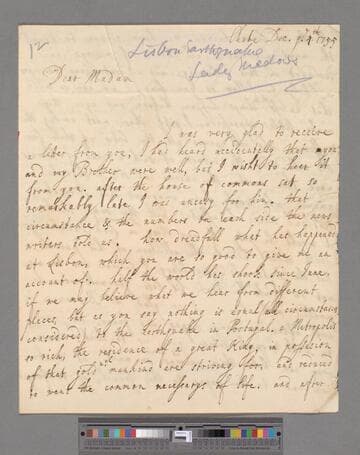 12
Lisbon Earthquake
Lady Medows
Dec. 4th 1755
Dear Madam
I was very glad to receive
a letter from you, I had heard accidentally that you
and my Brother were well, but I wisht to hear it
from you. after the house of commons sat so
remarkably late I was uneasy for him. that
circumstance & the numbers on each side the news
writers told us. how dreadfull what has happened
at Lisbon, which you are so good to give me an
account of. half the world has shook since June,
if we may believe what we hear from different
places, but as you say nothing is equal all circumstances
considered to the Earthquake in Portugal. a Metropolis
so rich, the residence of a great King, in possession
of that gold wch mankind are striving for, and reduced
to want the common necessarys of life. and after